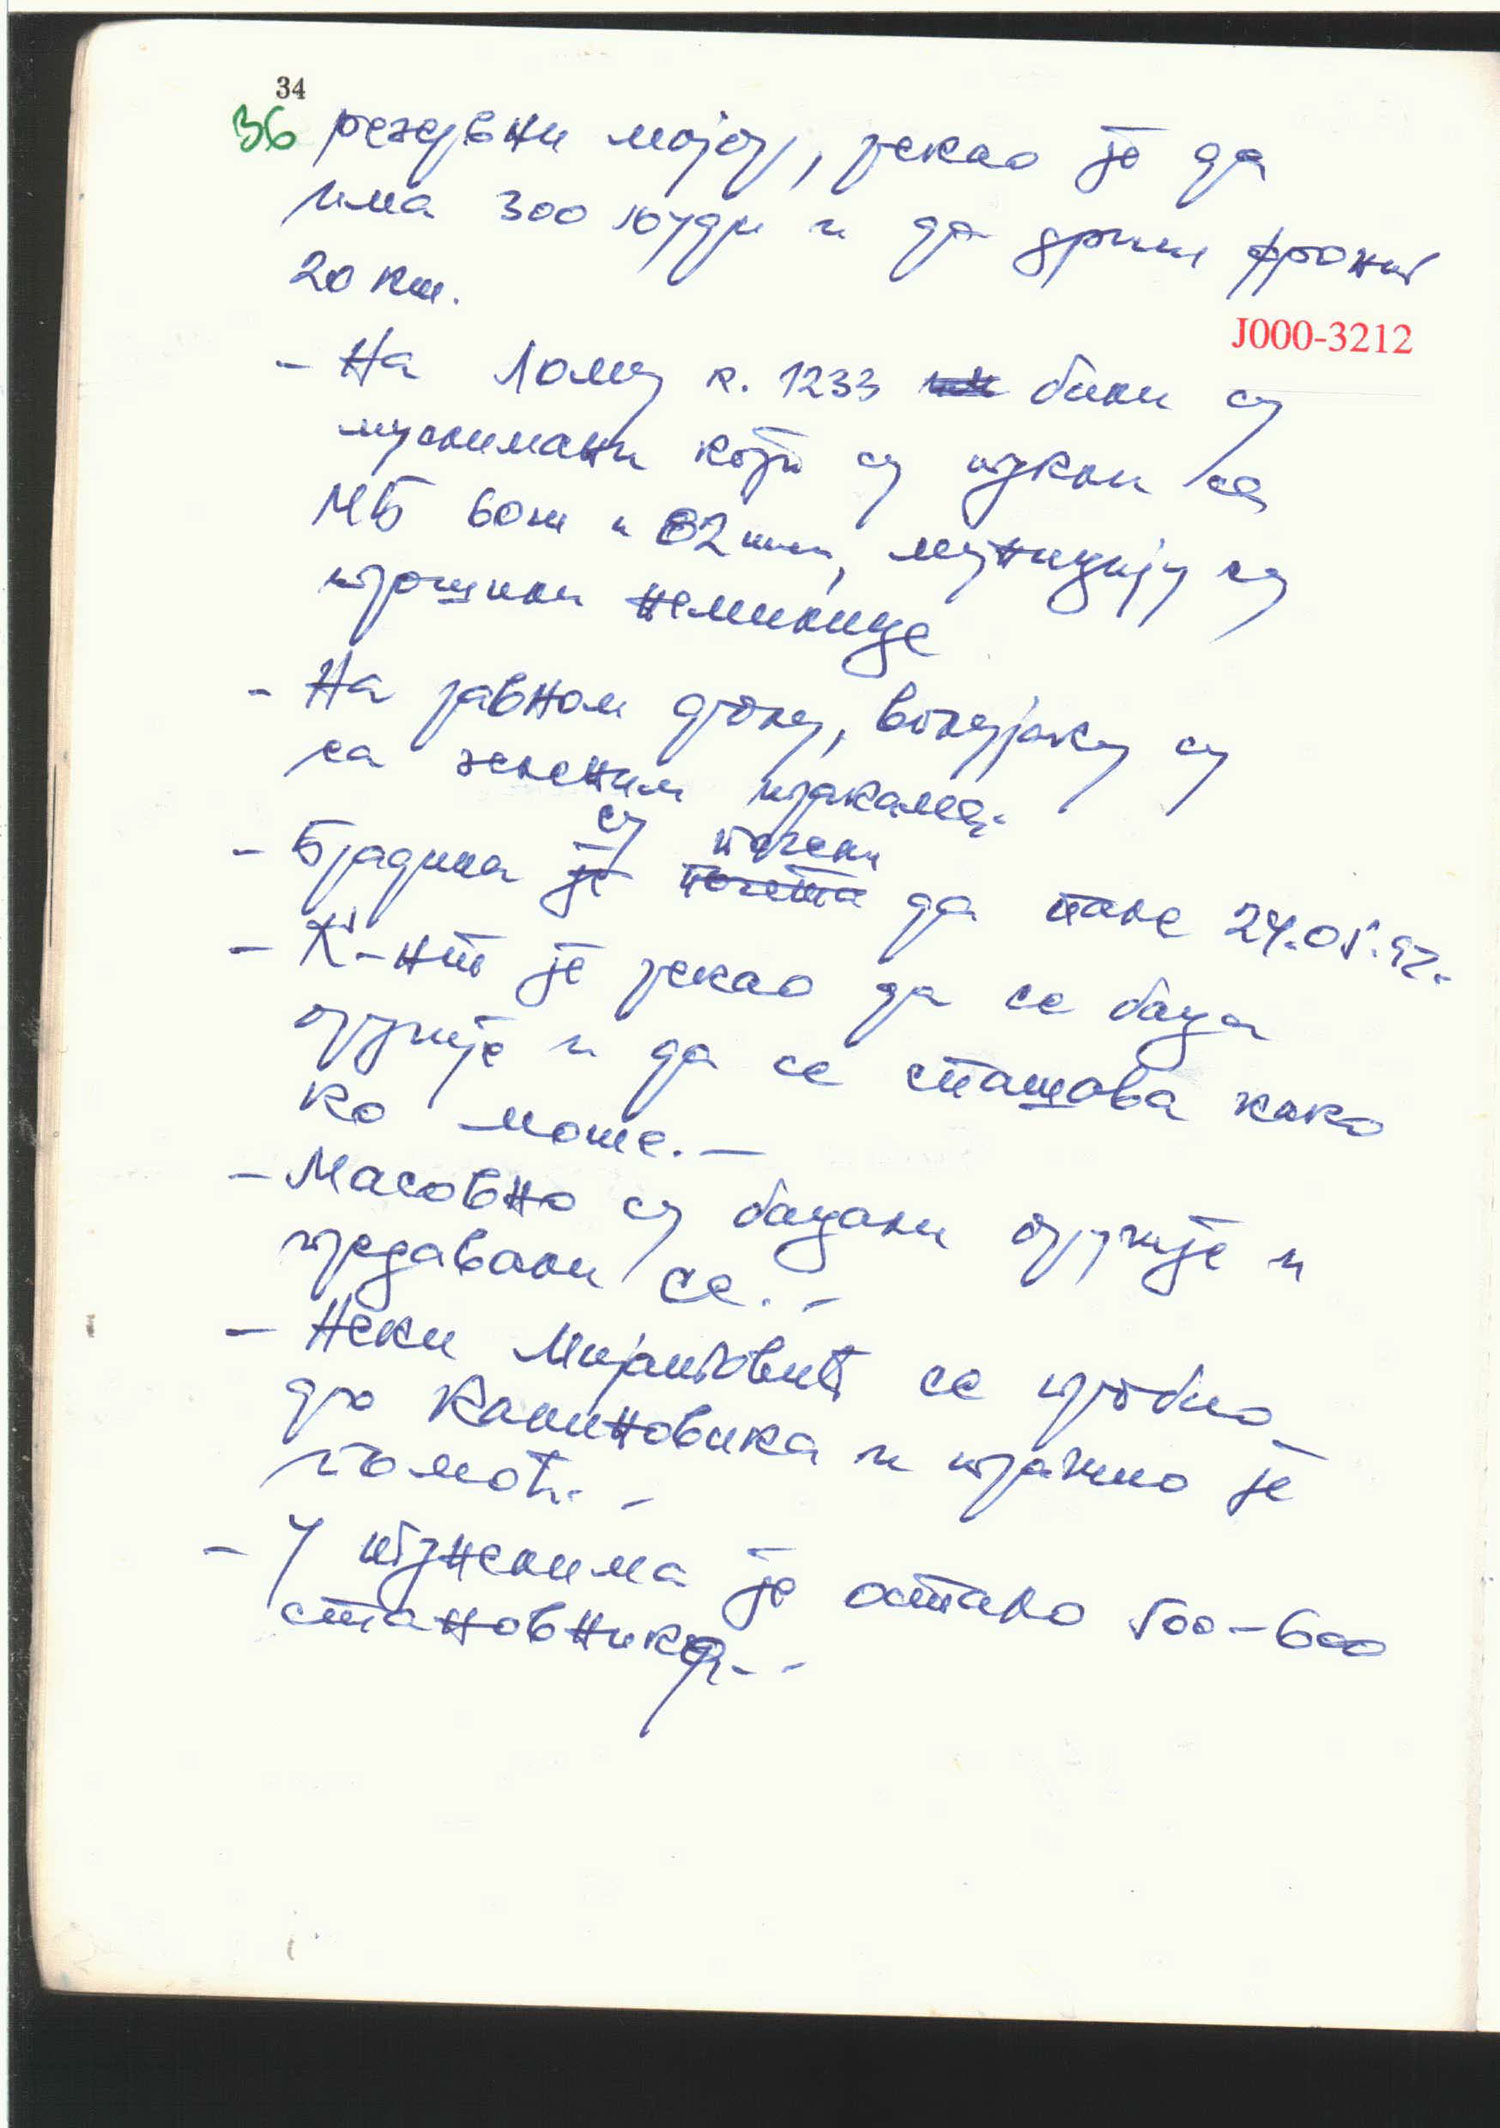 34
36 резервни мајор, рекао је да
има 300 људи и да држи фронт
20 км.
J000-3212
- На Лому к. 1233 били су
муслимани који су тукли са
МБ 60 и 82 мм, муницију су
трошили немилице
- На равном долу, војјаку су
са зеленим тракама.
- Брадина је су почета почели да пале 24.05.92.
- К-нт је рекао да се баца
оружје и да се сташава како
ко може. -
- Масовно су бацали оружје и
предавали се. -
- Неки Мијатовић се пробио
до Калиновика и тражио је
помоћ. -
- У тунелима је остало 500-600
становника. -